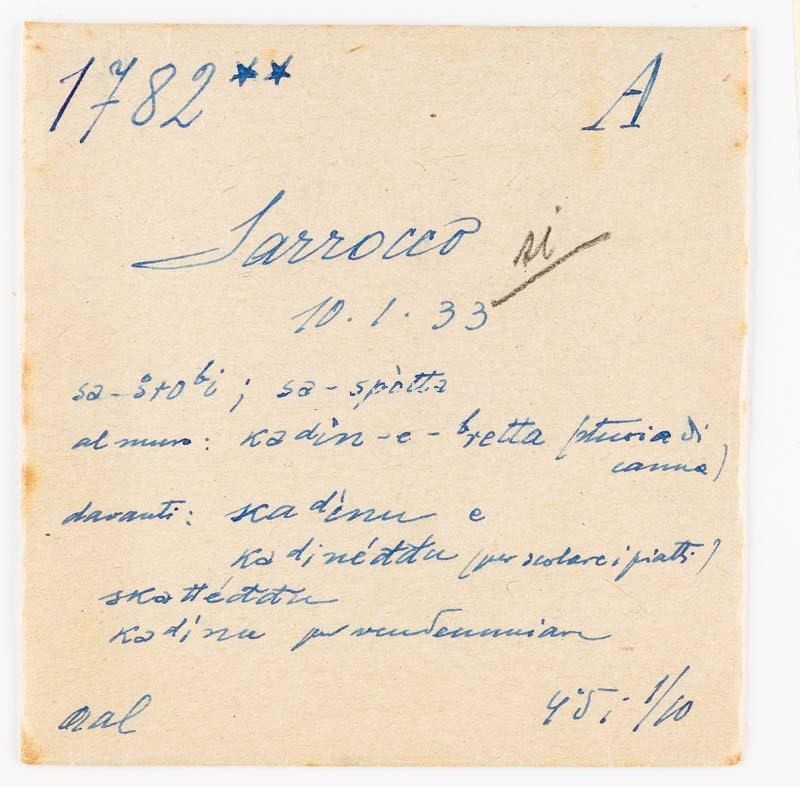 1782** A
Sarrocco si
10.1.33
sa-štobi; sa-spòtta
al muro: kadin-e-bretta (stuoia di
canna)
davanti: skadinu e
kadinéddu (per scolare i piatti)
skattéddu
kadinu per vendemmiare
aal
45; 1/10